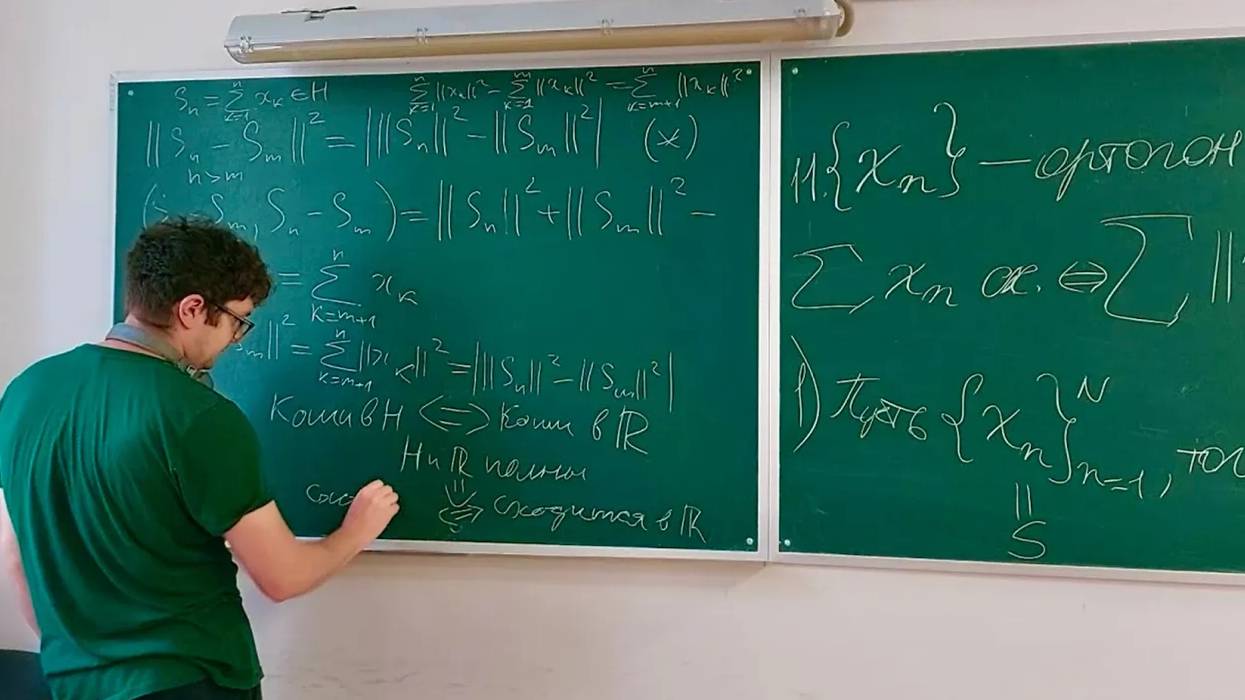 Sₙ = ∑_{k=1}^{n} xₖ ∈ H
∑_{k=1}^{n} ||xₖ||² − ∑_{k=1}^{m} ||xₖ||² = ∑_{k=m+1}^{n} ||xₖ||²
||Sₙ − Sₘ||² = | ||Sₙ||² − ||Sₘ||² | (*)
n>m
Sₘ, Sₙ − Sₘ) = ||Sₙ||² + ||Sₘ||² −
= ∑_{k=m+1}^{n} xₖ
ₘ||² = ∑_{k=m+1}^{n} ||xₖ||² = | ||Sₙ||² − ||Sₘ||² |
Коши в H ⟺ Коши в ℝ
H и ℝ полны
⇓
⟺ сходится в ℝ
11. {xₙ} — ортогон
∑ xₙ сх. ⟺ ∑ ||
1) Пусть {xₙ}_{n=1}^{N}, тог
||
S